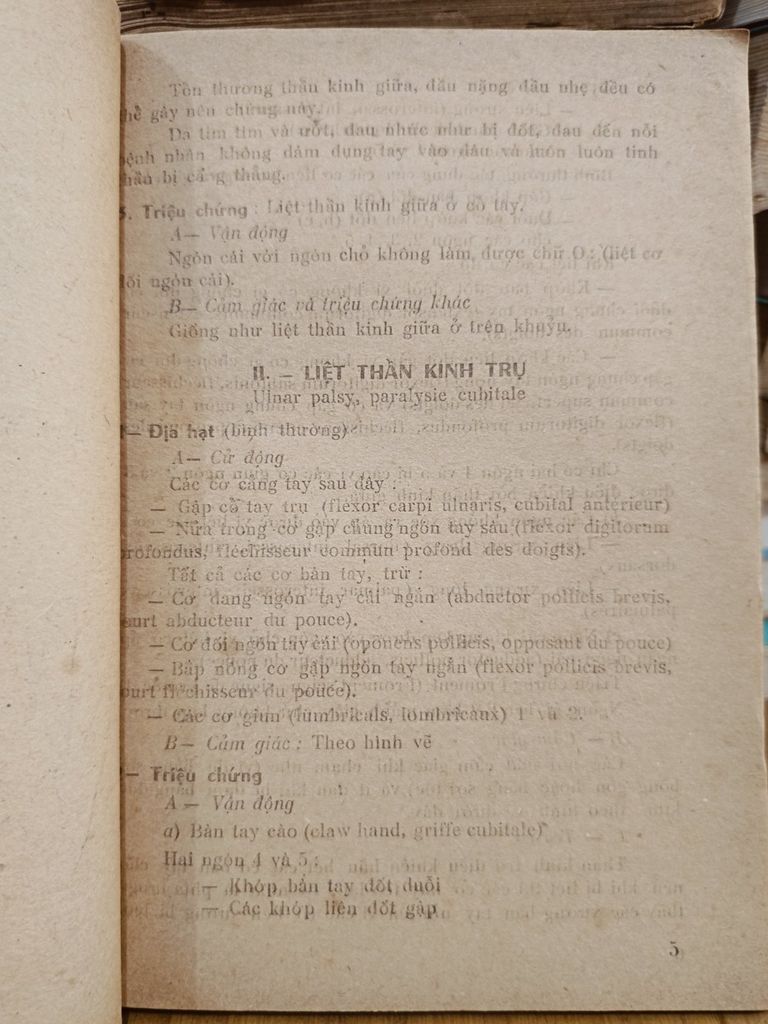 Tồn thương thần kinh giữa, dầu nặng dầu nhẹ đều có
hể gây nên chứng này.
Da tím tím và ướt, đau nhức như bị đốt, đau đến nỗi
ệnh nhân không dám dụng tay vào đâu và luôn luôn tinh
hần bị căng thẳng.
3. Triệu chứng : Liệt thần kinh giữa ở cổ tay.
A— Vận động
Ngón cái với ngón chỏ không làm được chữ O : (liệt cơ
đối ngón cái).
B— Cảm giác và triệu chứng khác
Giống như liệt thần kinh giữa ở trên khuỷu.
II. — LIỆT THẦN KINH TRỤ
Ulnar palsy, paralysie cubitale
— Địa hạt (bình thường)
A— Cử động
Các cơ cẳng tay sau đây :
— Gập cổ tay trụ (flexor carpi ulnaris, cubital antérieur)
— Nửa trong cơ gập chung ngón tay sâu (flexor digitorum
profondus, fléchisseur commun profond des doigts).
Tất cả các cơ bàn tay, trừ :
— Cơ dang ngón tay cái ngắn (abductor pollicis brevis,
ourt abducteur du pouce).
— Cơ đối ngón tay cái (oponens pollicis, opposant du pouce)
— Bắp nông cơ gập ngón tay ngắn (flexor pollicis brevis,
ourt fléchisseur du pouce).
— Các cơ giun (lumbricals, lombricaux) 1 và 2.
B— Cảm giác : Theo hình vẽ
— Triệu chứng
A — Vận động
a) Bàn tay cào (claw hand, griffe cubitale)
Hai ngón 4 và 5 :
— Khớp bàn tay đốt duỗi
— Các khớp liên đốt gập
5